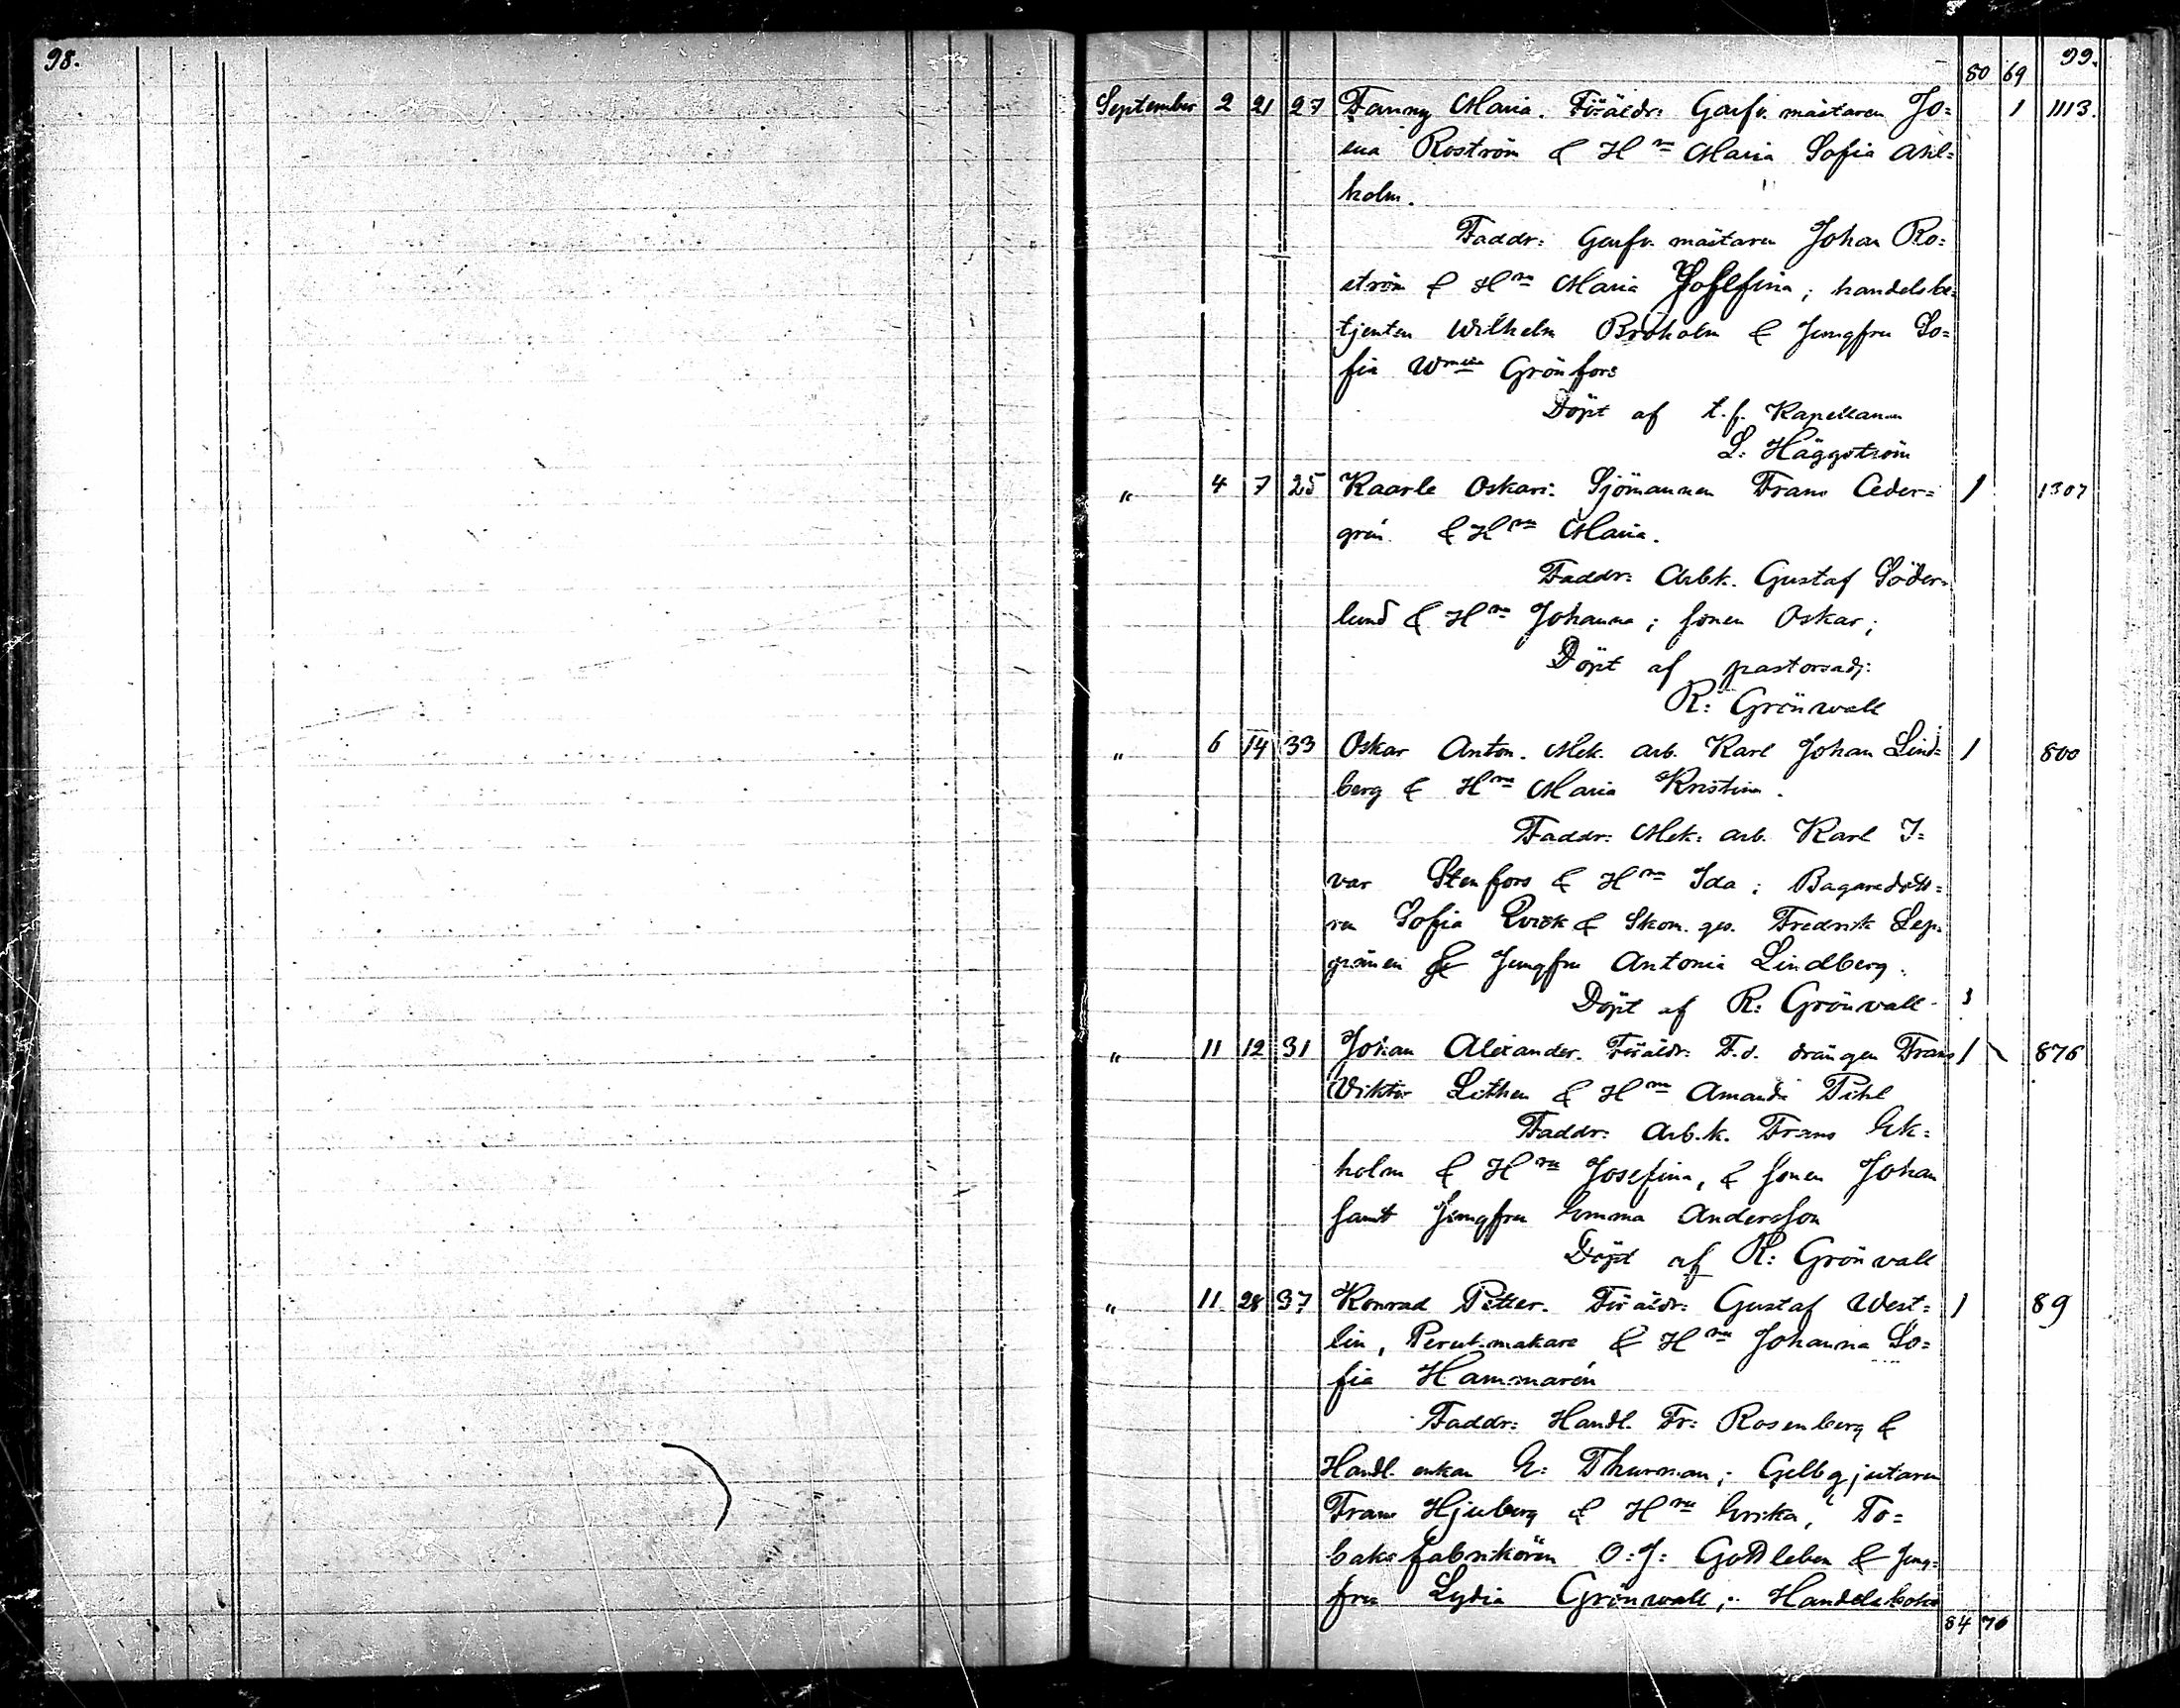 98.
99.
80 69
September 2 21 27 Fanny Maria. Föräldr: Garfv. mästaren Jo= 1 1113.
Roström & Hru Maria Sofia Ahl=
holm.
Faddr: Garfv. mästaren Johan Ro=
ström & Hru Maria Josefina; handelsbe=
tjenten Wilhelm Broholm & Jungfru So=
fia Grönfors
Döpt af t.f. Kapellanen
L: Häggström
" 4 7 25 Kaarle Oskari: Sjömannen Frans Ceder= 1 1307
grén & Hru Maria.
Faddr: Arbk. Gustaf Söder=
lund & Hru Johanna; sonen Oskar;
Döpt af pastorsadj:
R: Grönwall
" 6 14 33 Oskar Anton. Mek. arb. Karl Johan Lind= 1 800
berg & Hru Maria Kristina.
Faddr: Mek: arb. Karl I=
var Stenfors & Hru Ida; Bagaredott=
ren Sofia Qvick & Skom. ges. Fredrik Lep=
pänen & Jungfru Antonia Lindberg.
Döpt af R: Grönvall
" 11 12 31 Johan Alexander. Föräldr: F.d. drängen Frans 1 876
Viktor Lithen & Hru Amanda Pihl
Faddr: Arb.k. Frans Ek=
holm & Hru Josefina, & sonen Johan
samt Jungfru Emma Andersson
Döpt af R: Grönvall
" 11 28 37 Konrad Petter. Föräldr: Gustaf West= 1 89
lin, Peruk.makare & Hru Johanna So=
fia Hammarén
Faddr: Handl. Fr: Rosenberg &
Handl. enkan E: Thurman; Gelbgjutaren
Frans Hjulberg & Hru Erika, To=
baksfabrikören O: J: Gottleben & Jung=
fru Lydia Grönwall;
84 70